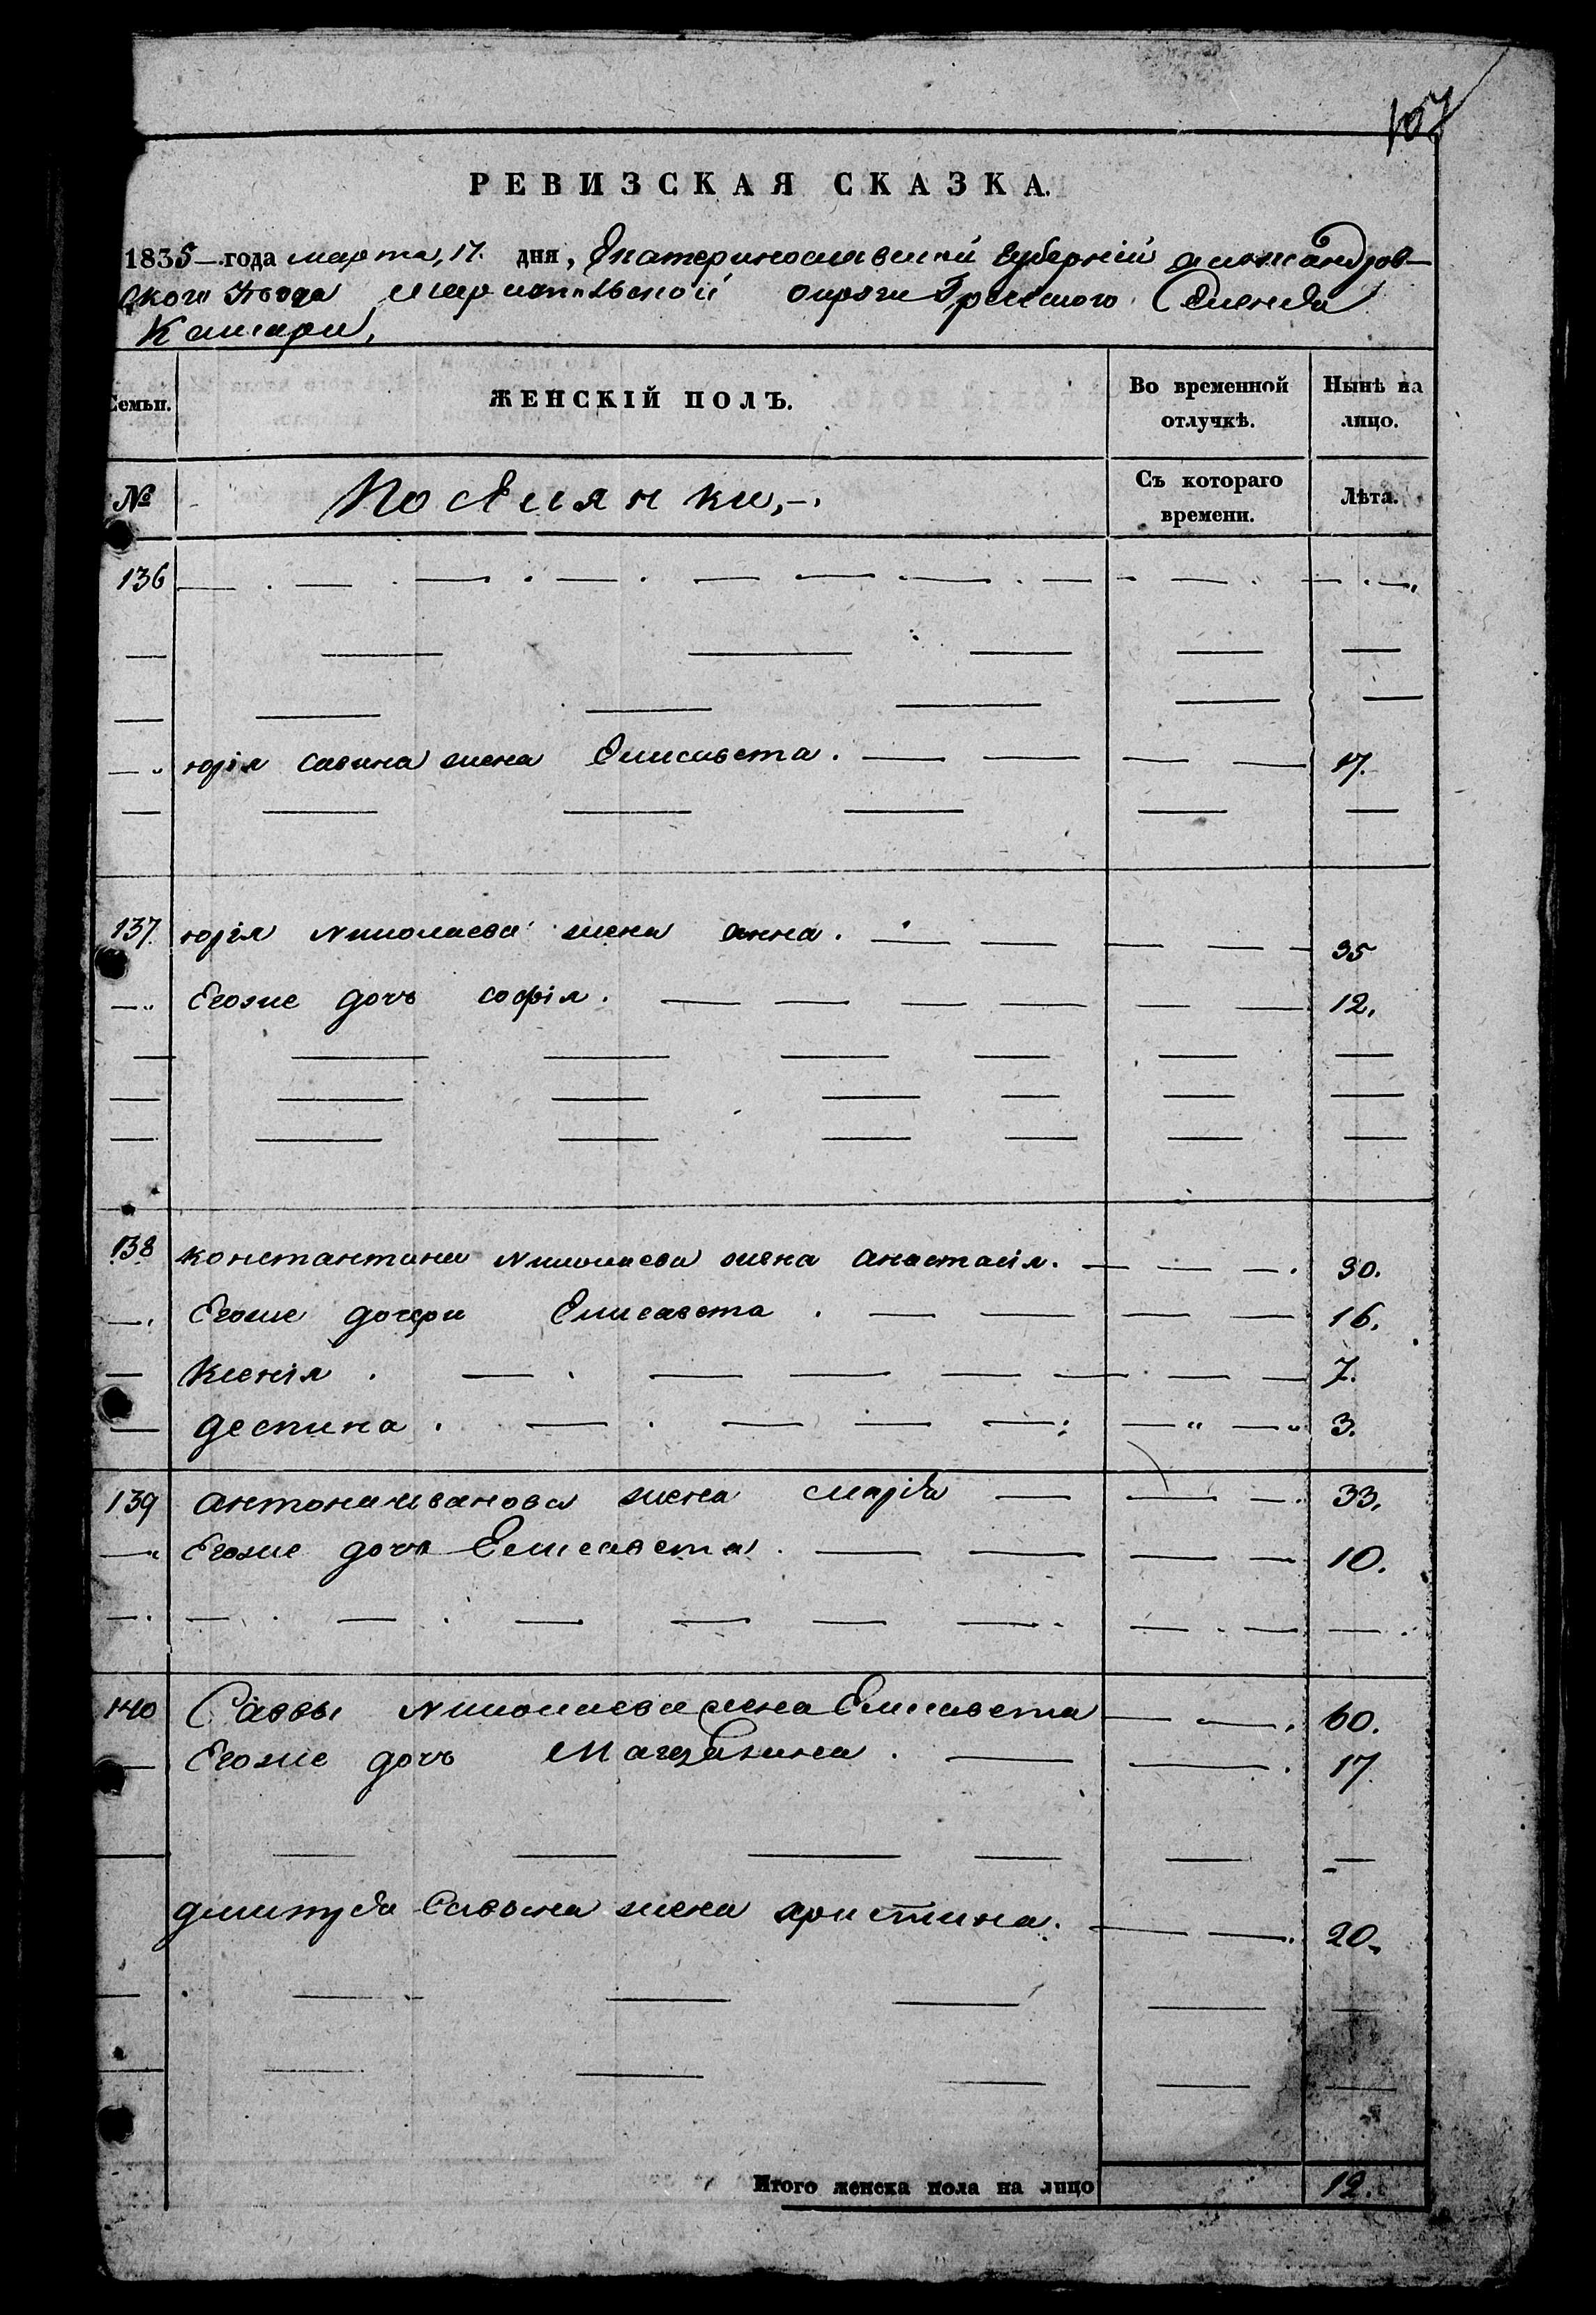 107
РЕВИЗСКАЯ СКАЗКА.
1835 года марта, 17. дня, Екатеринославской Губерніи александров-
ского Уезда Мариупольской округи Греческого Селенда
Камари,
Семьи. ЖЕНСКІЙ ПОЛЪ. Во временной отлучкѣ. Нынѣ на лицо.
№ Поселянки, Съ котораго времени. Лѣта.
136
юрія савина жена Елисавета. 17.
137. юрія Николаева жена анна. 35
Егоже дочь софія. 12.
138 константина Николаева жена анастасія. 30.
Егоже дочери Елисавета. 16.
Ксенія. 7.
деспина. 3.
139 антона иванова жена марія 33.
Егоже дочь Елисавета. 10.
140 Саввы Николаева жена Елисавета 60.
Егоже дочь Магдалина. 17.
Савына жена христина. 20.
Итого женска пола на лицо 12.